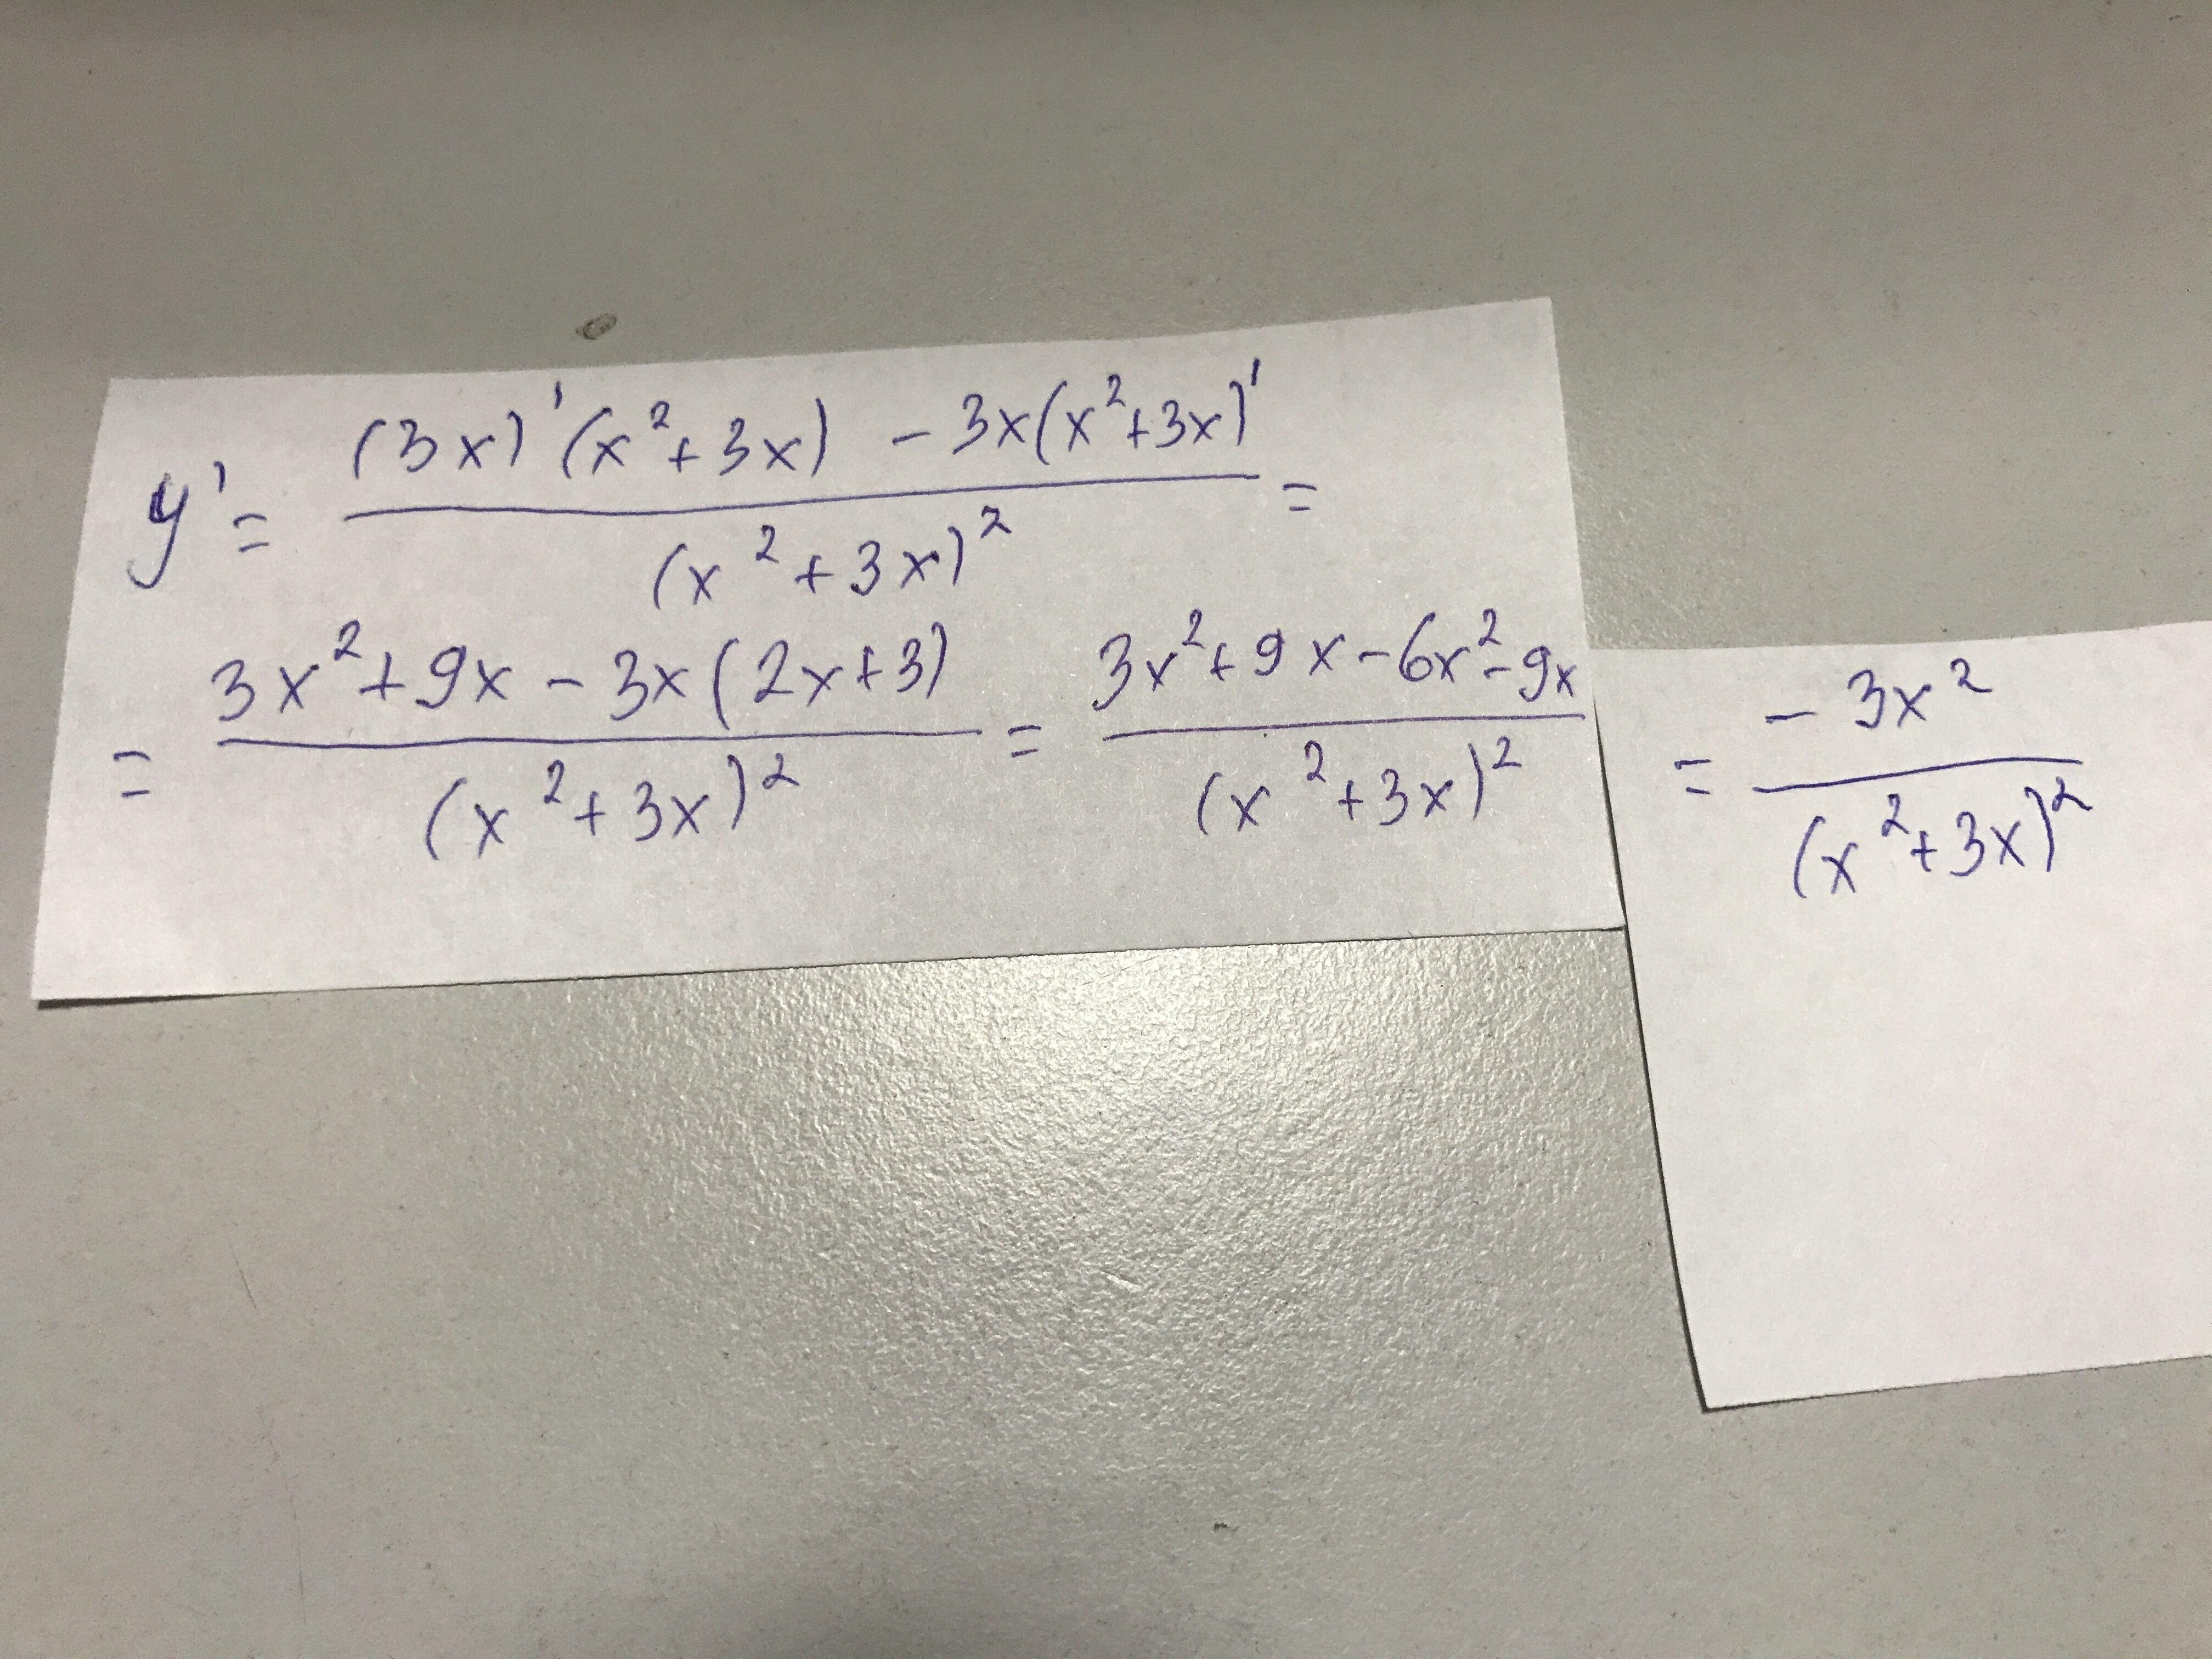 y' = ((3x)'(x²+3x) - 3x(x²+3x)')/((x²+3x)²) =
= (3x²+9x-3x(2x+3))/((x²+3x)²) = (3x²+9x-6x²-9x)/((x²+3x)²) = (-3x²)/((x²+3x)²)